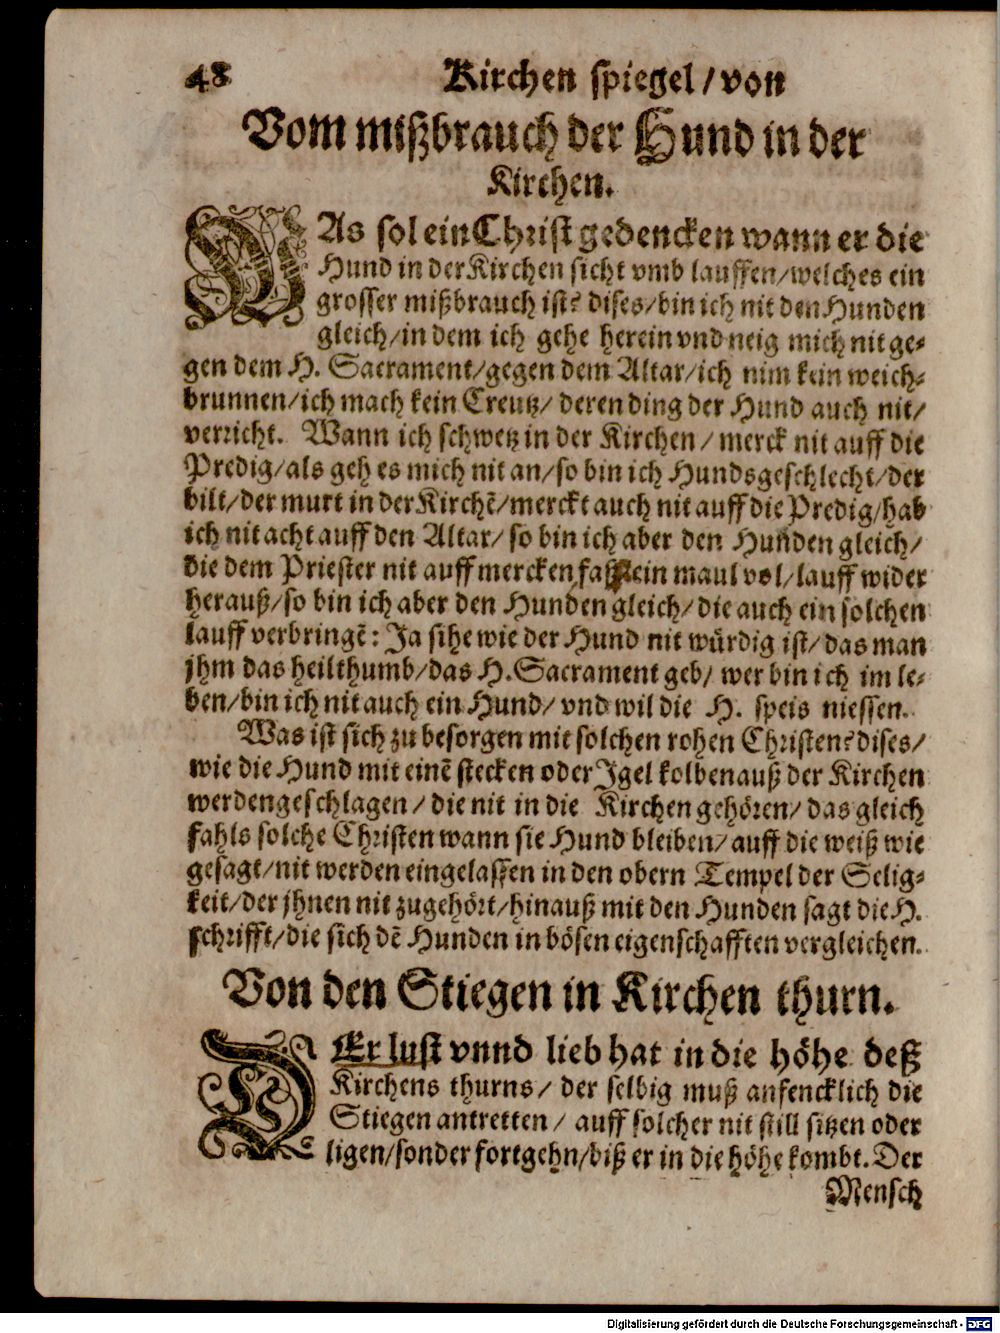 48 Kirchen spiegel/von
Vom mißbrauch der Hund in der
Kirchen.
WAs sol ein Christ gedencken wann er die
Hund in der Kirchen sicht vmb lauffen/welches ein
grosser mißbrauch ist? dises/bin ich nit den Hunden
gleich/in dem ich gehe herein vnd neig mich nit ge-
gen dem H. Sacrament/gegen dem Altar/ich nim kein weich-
brunnen/ich mach kein Creutz/ deren ding der Hund auch nit/
verricht. Wann ich schwetz in der Kirchen/ merck nit auff die
Predig/als geh es mich nit an/so bin ich Hundsgeschlecht/der
bilt/der murt in der Kirchē/merckt auch nit auff die Predig/hab
ich nit acht auff den Altar/ so bin ich aber den Hunden gleich/
die dem Priester nit auff mercken, ein maul vol/lauff wider
herauß/so bin ich aber den Hunden gleich/ die auch ein solchen
lauff verbringē: Ja sihe wie der Hund nit würdig ist/ das man
jhm das heilthumb/das H. Sacrament geb/ wer bin ich im le-
ben/bin ich nit auch ein Hund/ vnd wil die H. speis niessen.
Was ist sich zu besorgen mit solchen rohen Christen? dises/
wie die Hund mit einē stecken oder Igel kolben auß der Kirchen
werden geschlagen/ die nit in die Kirchen gehören/ das gleich
fahls solche Christen wann sie Hund bleiben/ auff die weiß wie
gesagt/nit werden eingelassen in den obern Tempel der Selig-
keit/der jhnen nit zugehört/hinauß mit den Hunden sagt die H.
schrifft/die sich dē Hunden in bösen eigenschafften vergleichen.
Von den Stiegen in Kirchen thurn.
DEr lust vnnd lieb hat in die höhe deß
Kirchens thurns/ der selbig muß anfencklich die
Stiegen antretten/ auff solcher nit still sitzen oder
ligen/sonder fortgehn/biß er in die höhe kombt. Der
Mensch
Digitalisierung gefördert durch die Deutsche Forschungsgemeinschaft - DFG